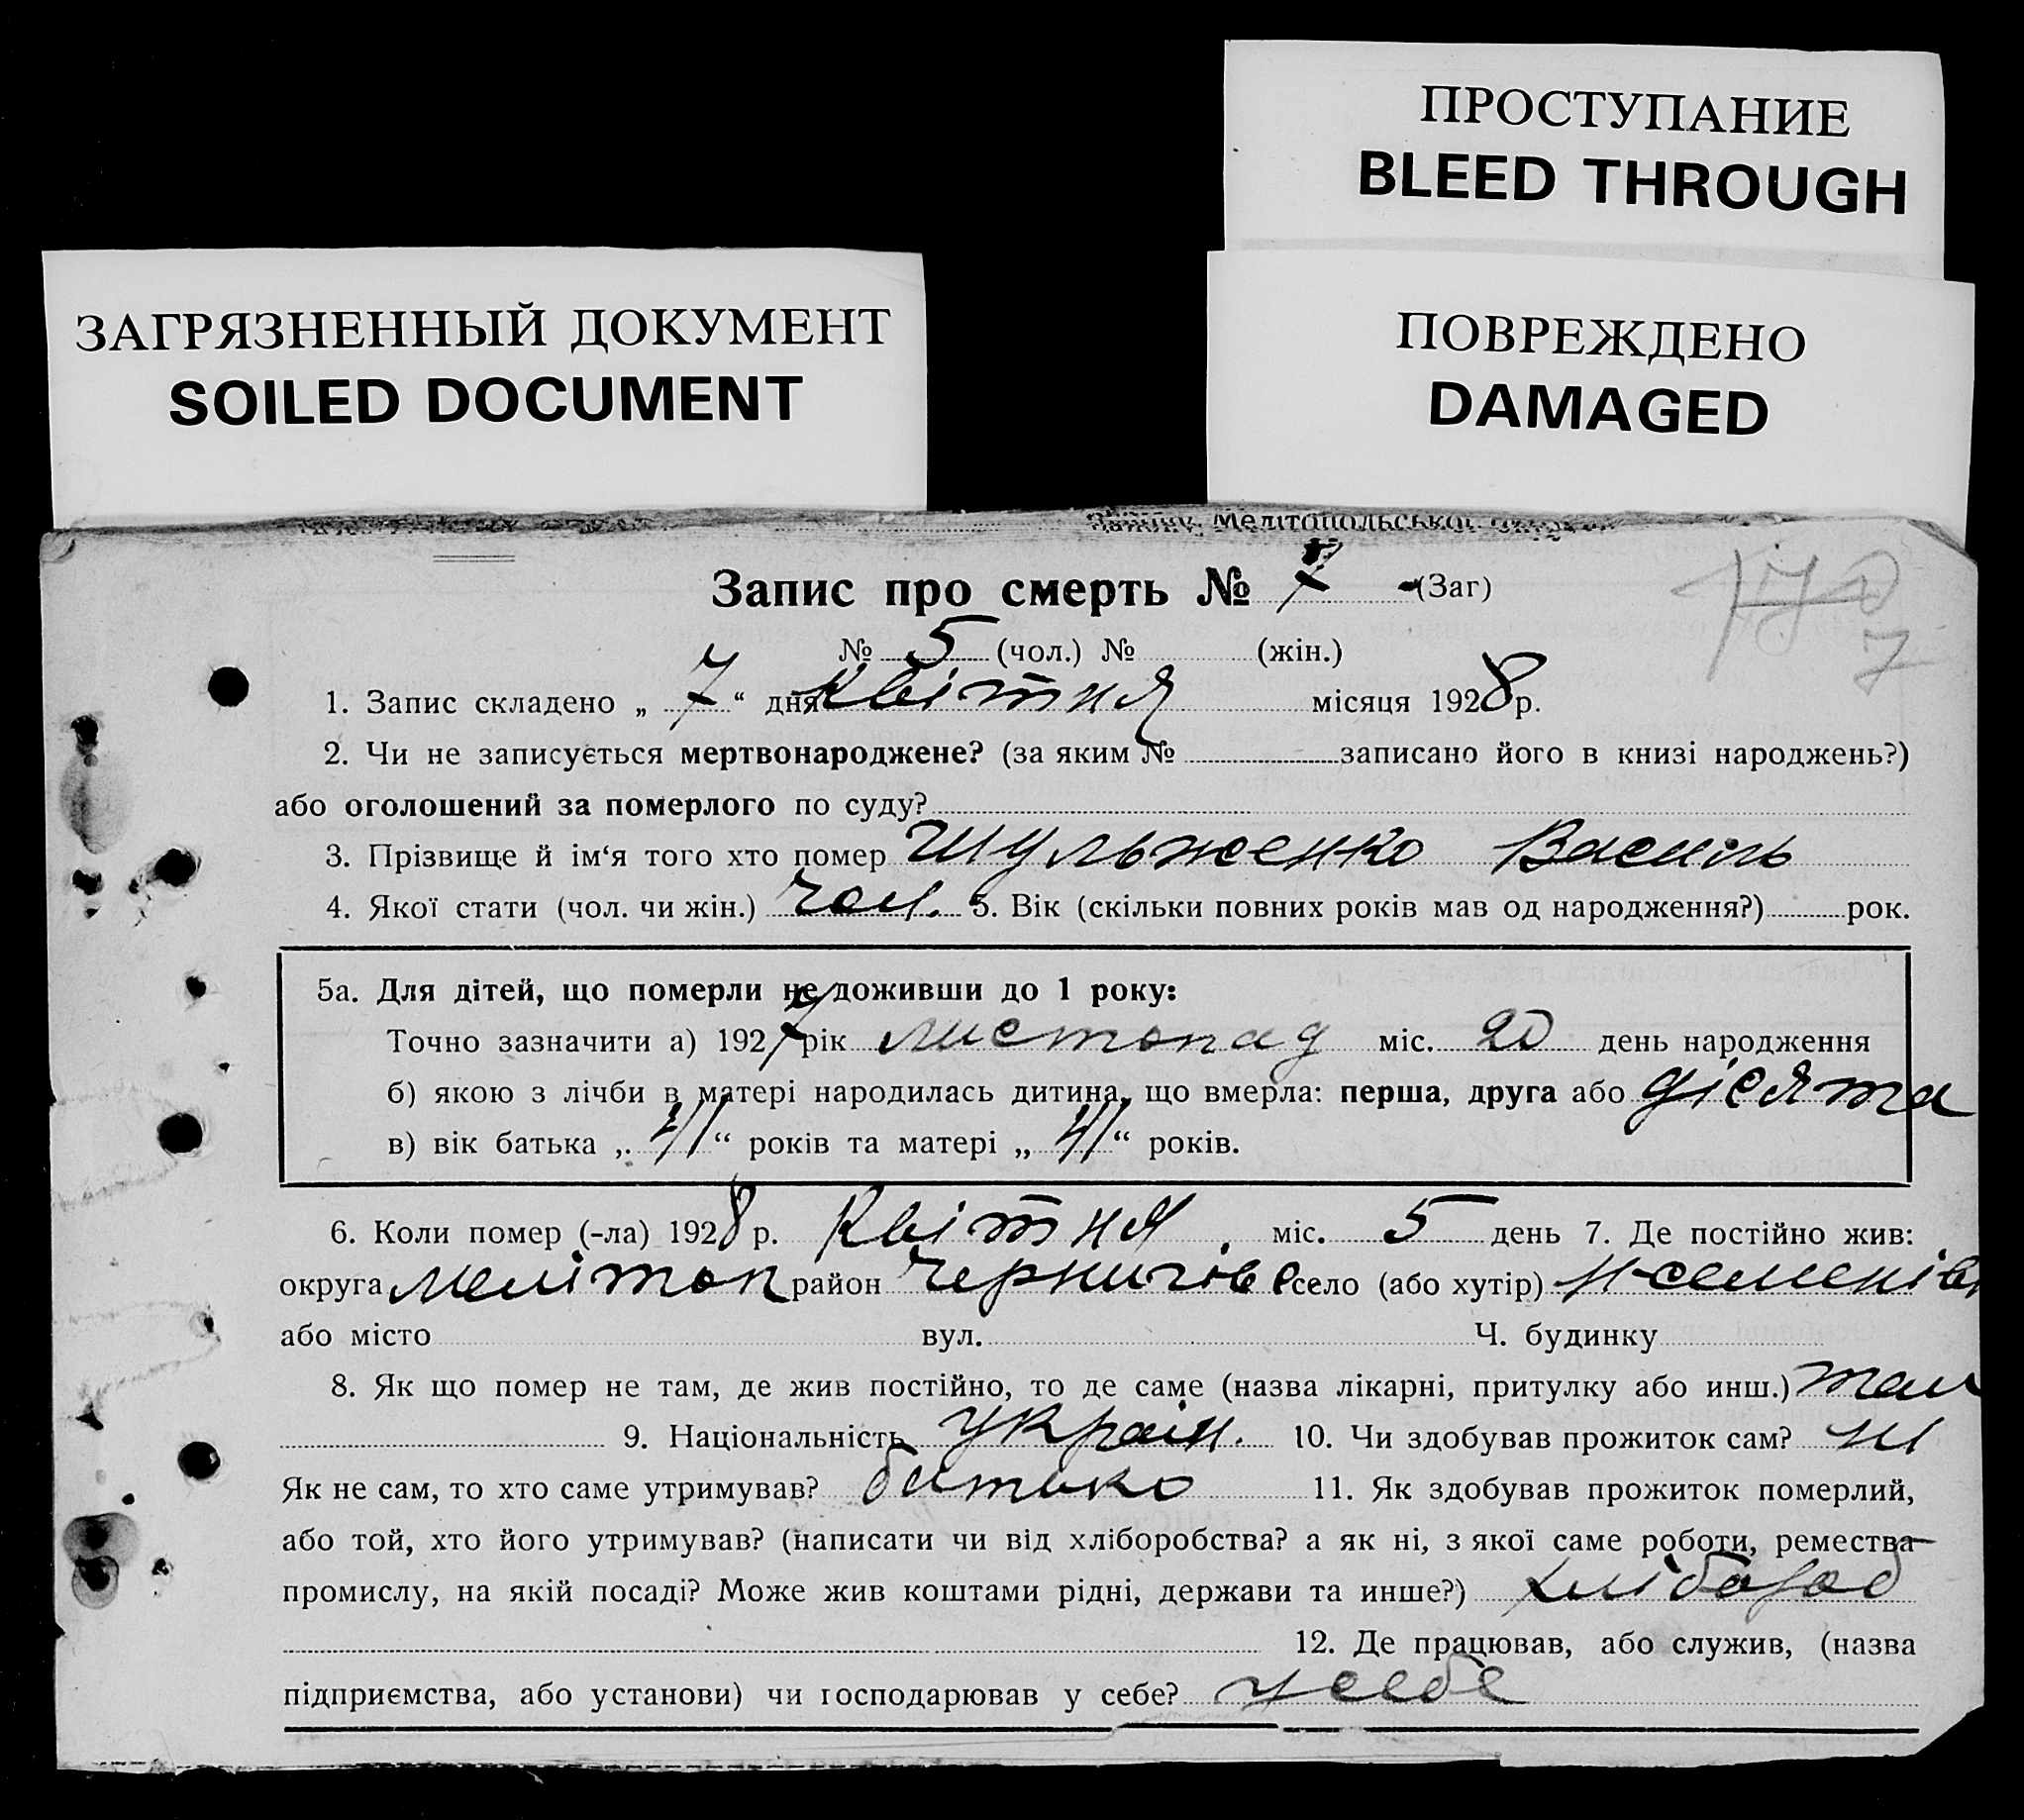 ПРОСТУПАНИЕ
BLEED THROUGH
ЗАГРЯЗНЕННЫЙ ДОКУМЕНТ
SOILED DOCUMENT
ПОВРЕЖДЕНО
DAMAGED
Мелітопольської
Запис про смерть № 7 (Заг)
170
7
№ 5 (чол.) № (жін.)
1. Запис складено „ 7 “ дня Квітня місяця 1928 р.
2. Чи не записується мертвонароджене? (за яким № записано його в книзі народжень?)
або оголошений за померлого по суду?
3. Прізвище й ім‘я того хто помер Шульженко Василь
4. Якої стати (чол. чи жін.) чол. 5. Вік (скільки повних років мав од народження?) рок.
5а. Для дітей, що померли не доживши до 1 року:
Точно зазначити а) 1927 рік листопад міс. 20 день народження
б) якою з лічби в матері народилась дитина, що вмерла: перша, друга або дісята
в) вік батька „ 41 “ років та матері „ 41 “ років.
6. Коли помер (-ла) 1928 р. Квітня міс. 5 день 7. Де постійно жив:
округа Мелітоп район Чернигівс село (або хутір)
або місто вул. Ч. будинку
8. Як що помер не там, де жив постійно, то де саме (назва лікарні, притулку або инш.) там
9. Національність украін. 10. Чи здобував прожиток сам? ні
Як не сам, то хто саме утримував? батько 11. Як здобував прожиток померлий,
або той, хто його утримував? (написати чи від хліборобства? а як ні, з якої саме роботи, ремества
промислу, на якій посаді? Може жив коштами рідні, держави та инше?) хлібороб
12. Де працював, або служив, (назва
підприємства, або установи) чи господарював у себе? у себе